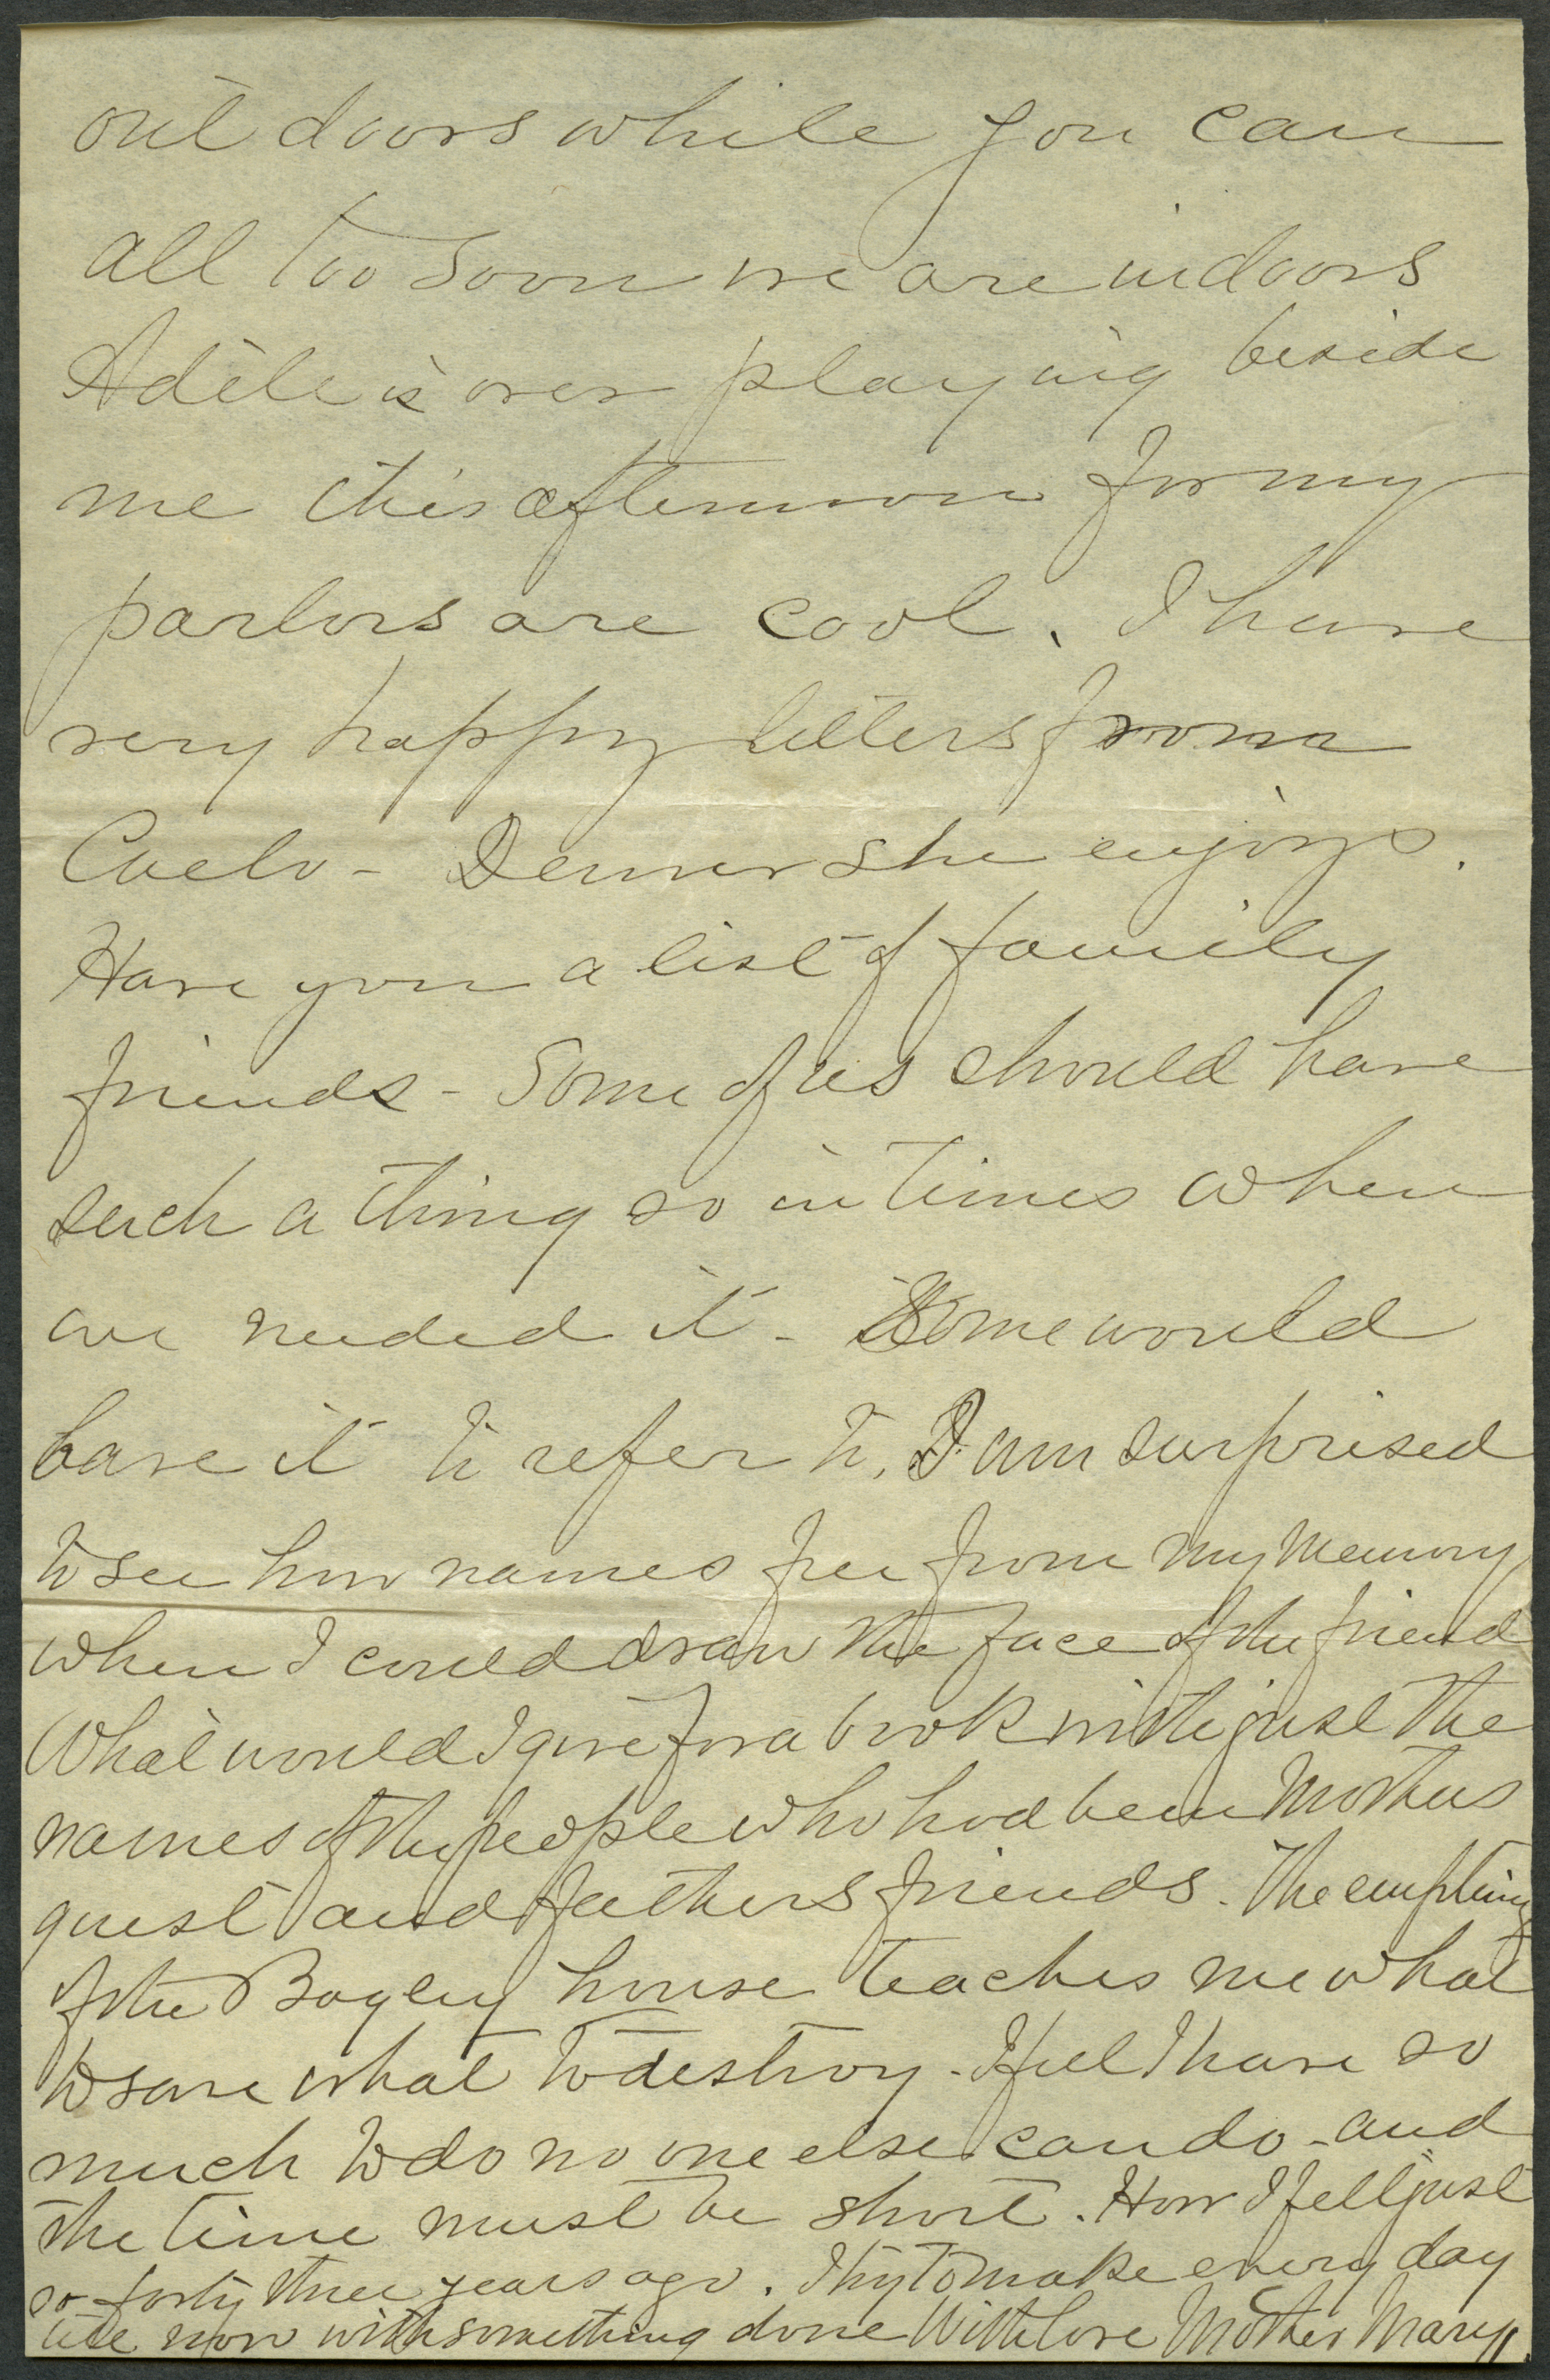 out doors while you can
all too soon we are indoors
Adele is over playing beside
me this afternoon for my
parlors are cool. I have
very happy letters from
Denver she enjoys.
Have you a list of family
friends - Some of us should have
such a thing so in times when
we needed it - Some would
have it to refer to, I am surprised
to see how names flee from my memory
when I could draw the face of the friend
What would I give for a book with just the
names of the people who had been Mothers
guest and fathers friends. The emptying
of the Bagley house teaches me what
to save what to destroy - I feel I have so
much to do no one else can do - and
the time must be short. How I felt just
so forty three years ago. I try to make every day
now with something done With love Mother Mary